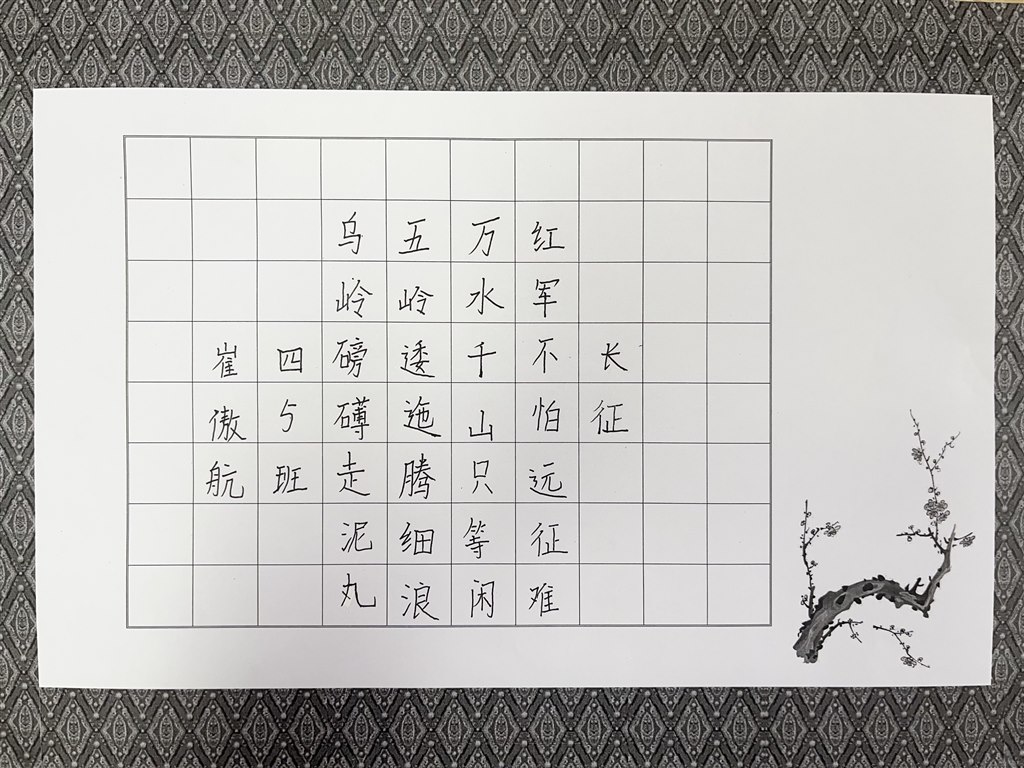 长征
红军不怕远征难
万水千山只等闲
五岭逶迤腾细浪
乌岭磅礴走泥丸
四5班
崔傲航